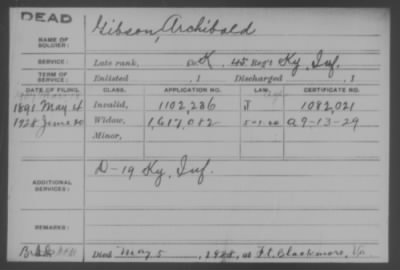 DEAD
NAME OF SOLDIER: Gibson, Archibald
SERVICE: Late rank, Co. K, 45 Reg't Ky. Inf.
TERM OF SERVICE: Enlisted , 1 Discharged , 1
DATE OF FILING. CLASS. APPLICATION NO. LAW. CERTIFICATE NO.
1891 May 4 Invalid, 1102,286 J 1082,021
1928 June 20 Widow, 1,617,012 5-1-20 A9-13-29
Minor,
ADDITIONAL SERVICES: D-19 Ky. Inf.
REMARKS:
Died May 5, 1928, at Ft. Blackmore, Va.